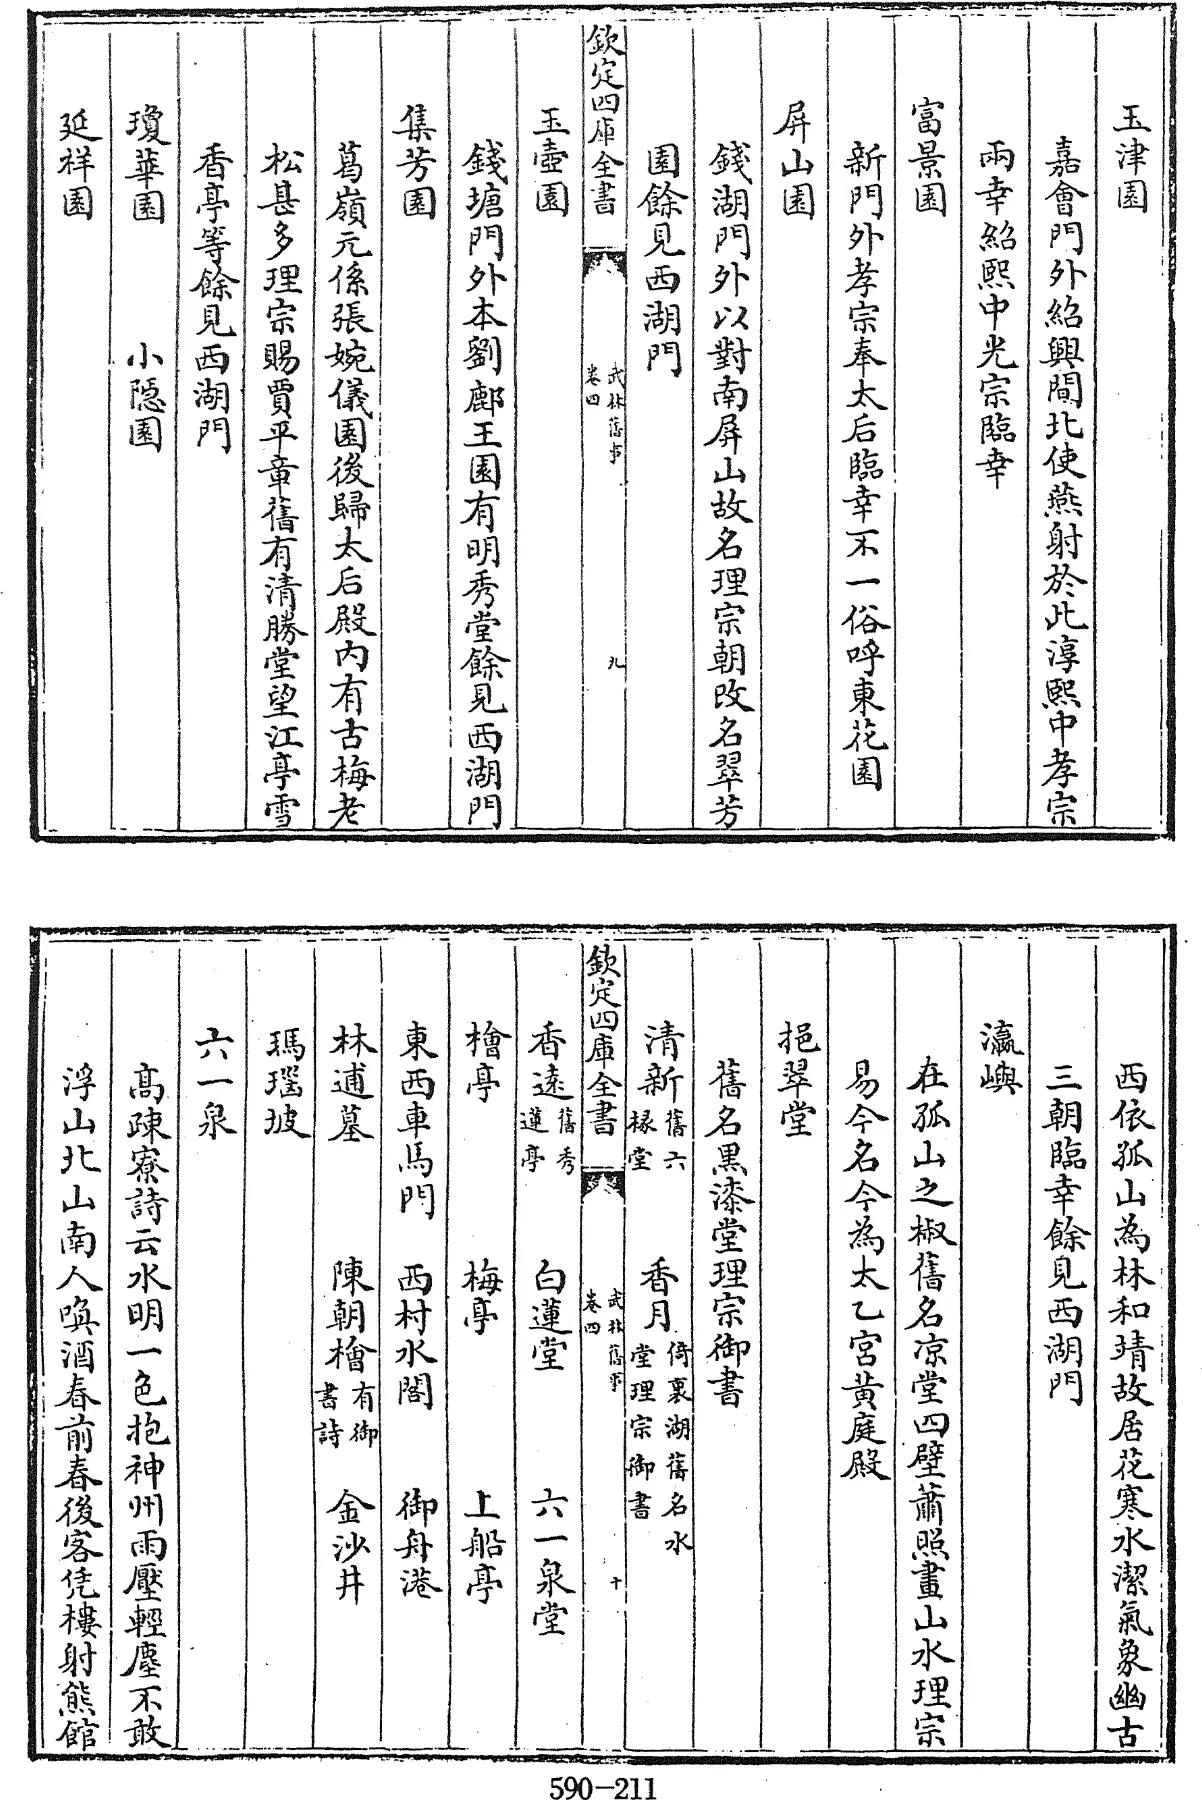 玉津園
嘉會門外紹興間北使燕射於此淳熙中孝宗
兩幸紹熙中光宗臨幸
富景園
新門外孝宗奉太后臨幸不一俗呼東花園
屏山園
錢湖門外以對南屏山故名理宗朝改名翠芳
園餘見西湖門
欽定四庫全書
武林舊事
卷四
九
玉壺園
錢塘門外本劉鄜王園有明秀堂餘見西湖門
集芳園
葛嶺元係張婉儀園後歸太后殿内有古梅老
松甚多理宗賜賈平章舊有清勝堂望江亭雪
香亭等餘見西湖門
瓊華園 小隱園
延祥園
西依孤山為林和靖故居花寒水潔氣象幽古
三朝臨幸餘見西湖門
瀛嶼
在孤山之椒舊名凉堂四壁蕭照畫山水理宗
易今名今為太乙宮黄庭殿
挹翠堂
舊名黒漆堂理宗御書
清新 舊六椽堂 香月 倚裏湖舊名水堂理宗御書
欽定四庫全書
武林舊事
卷四
十
香遠 舊秀蓮亭 白蓮堂 六一泉堂
檜亭 梅亭 上船亭
東西車馬門 西村水閣 御舟港
林逋墓 陳朝檜 有御書詩 金沙井
瑪瑙坡
六一泉
髙疎寮詩云水明一色抱神州雨壓輕塵不敢
浮山北山南人喚酒春前春後客凭樓射熊館
590-211